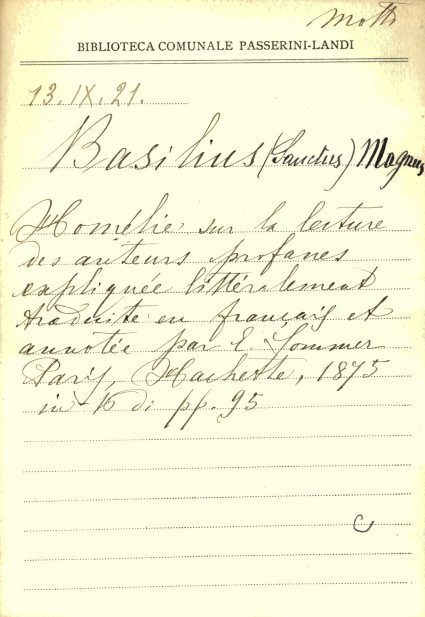 Motti
BIBLIOTECA COMUNALE PASSERINI-LANDI
13.IX.21.
Basilius (Sanctus) Magnus
Homélie sur la lecture
des auteurs profanes
expliquée littéralement
traduite en français et
annotée par E. Sommer
Paris, Hachette, 1875
in-16 di pp. 95
C